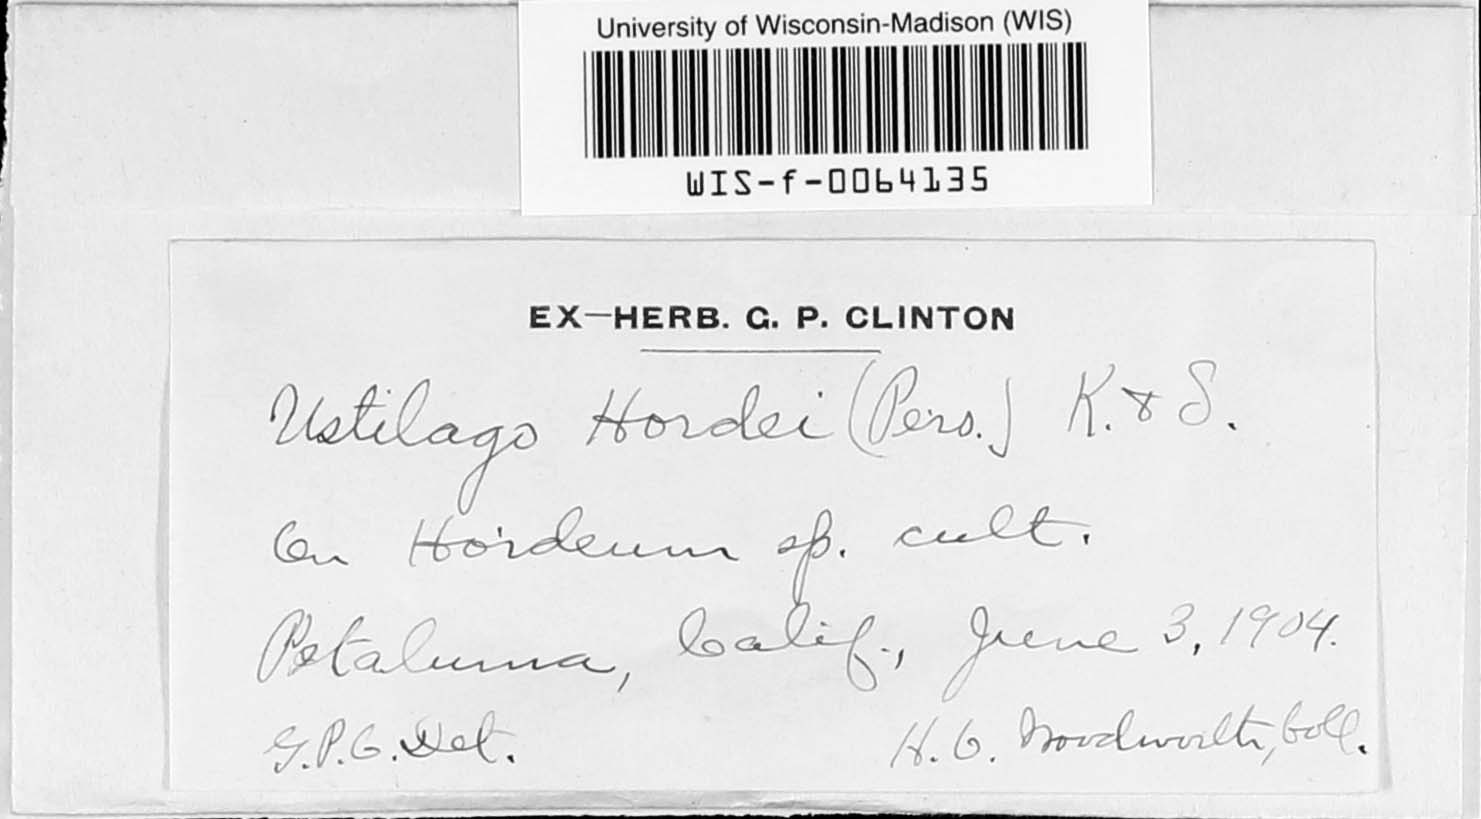 University of Wisconsin-Madison (WIS)
WIS-f-0064135
EX-HERB. G. P. CLINTON
Ustilago Hordei (Pers.) K. & S.
On Hordeum sp. cult.
Petaluma, Calif., June 3, 1904.
G.P.C. Det.
H. C. Woodworth, Coll.